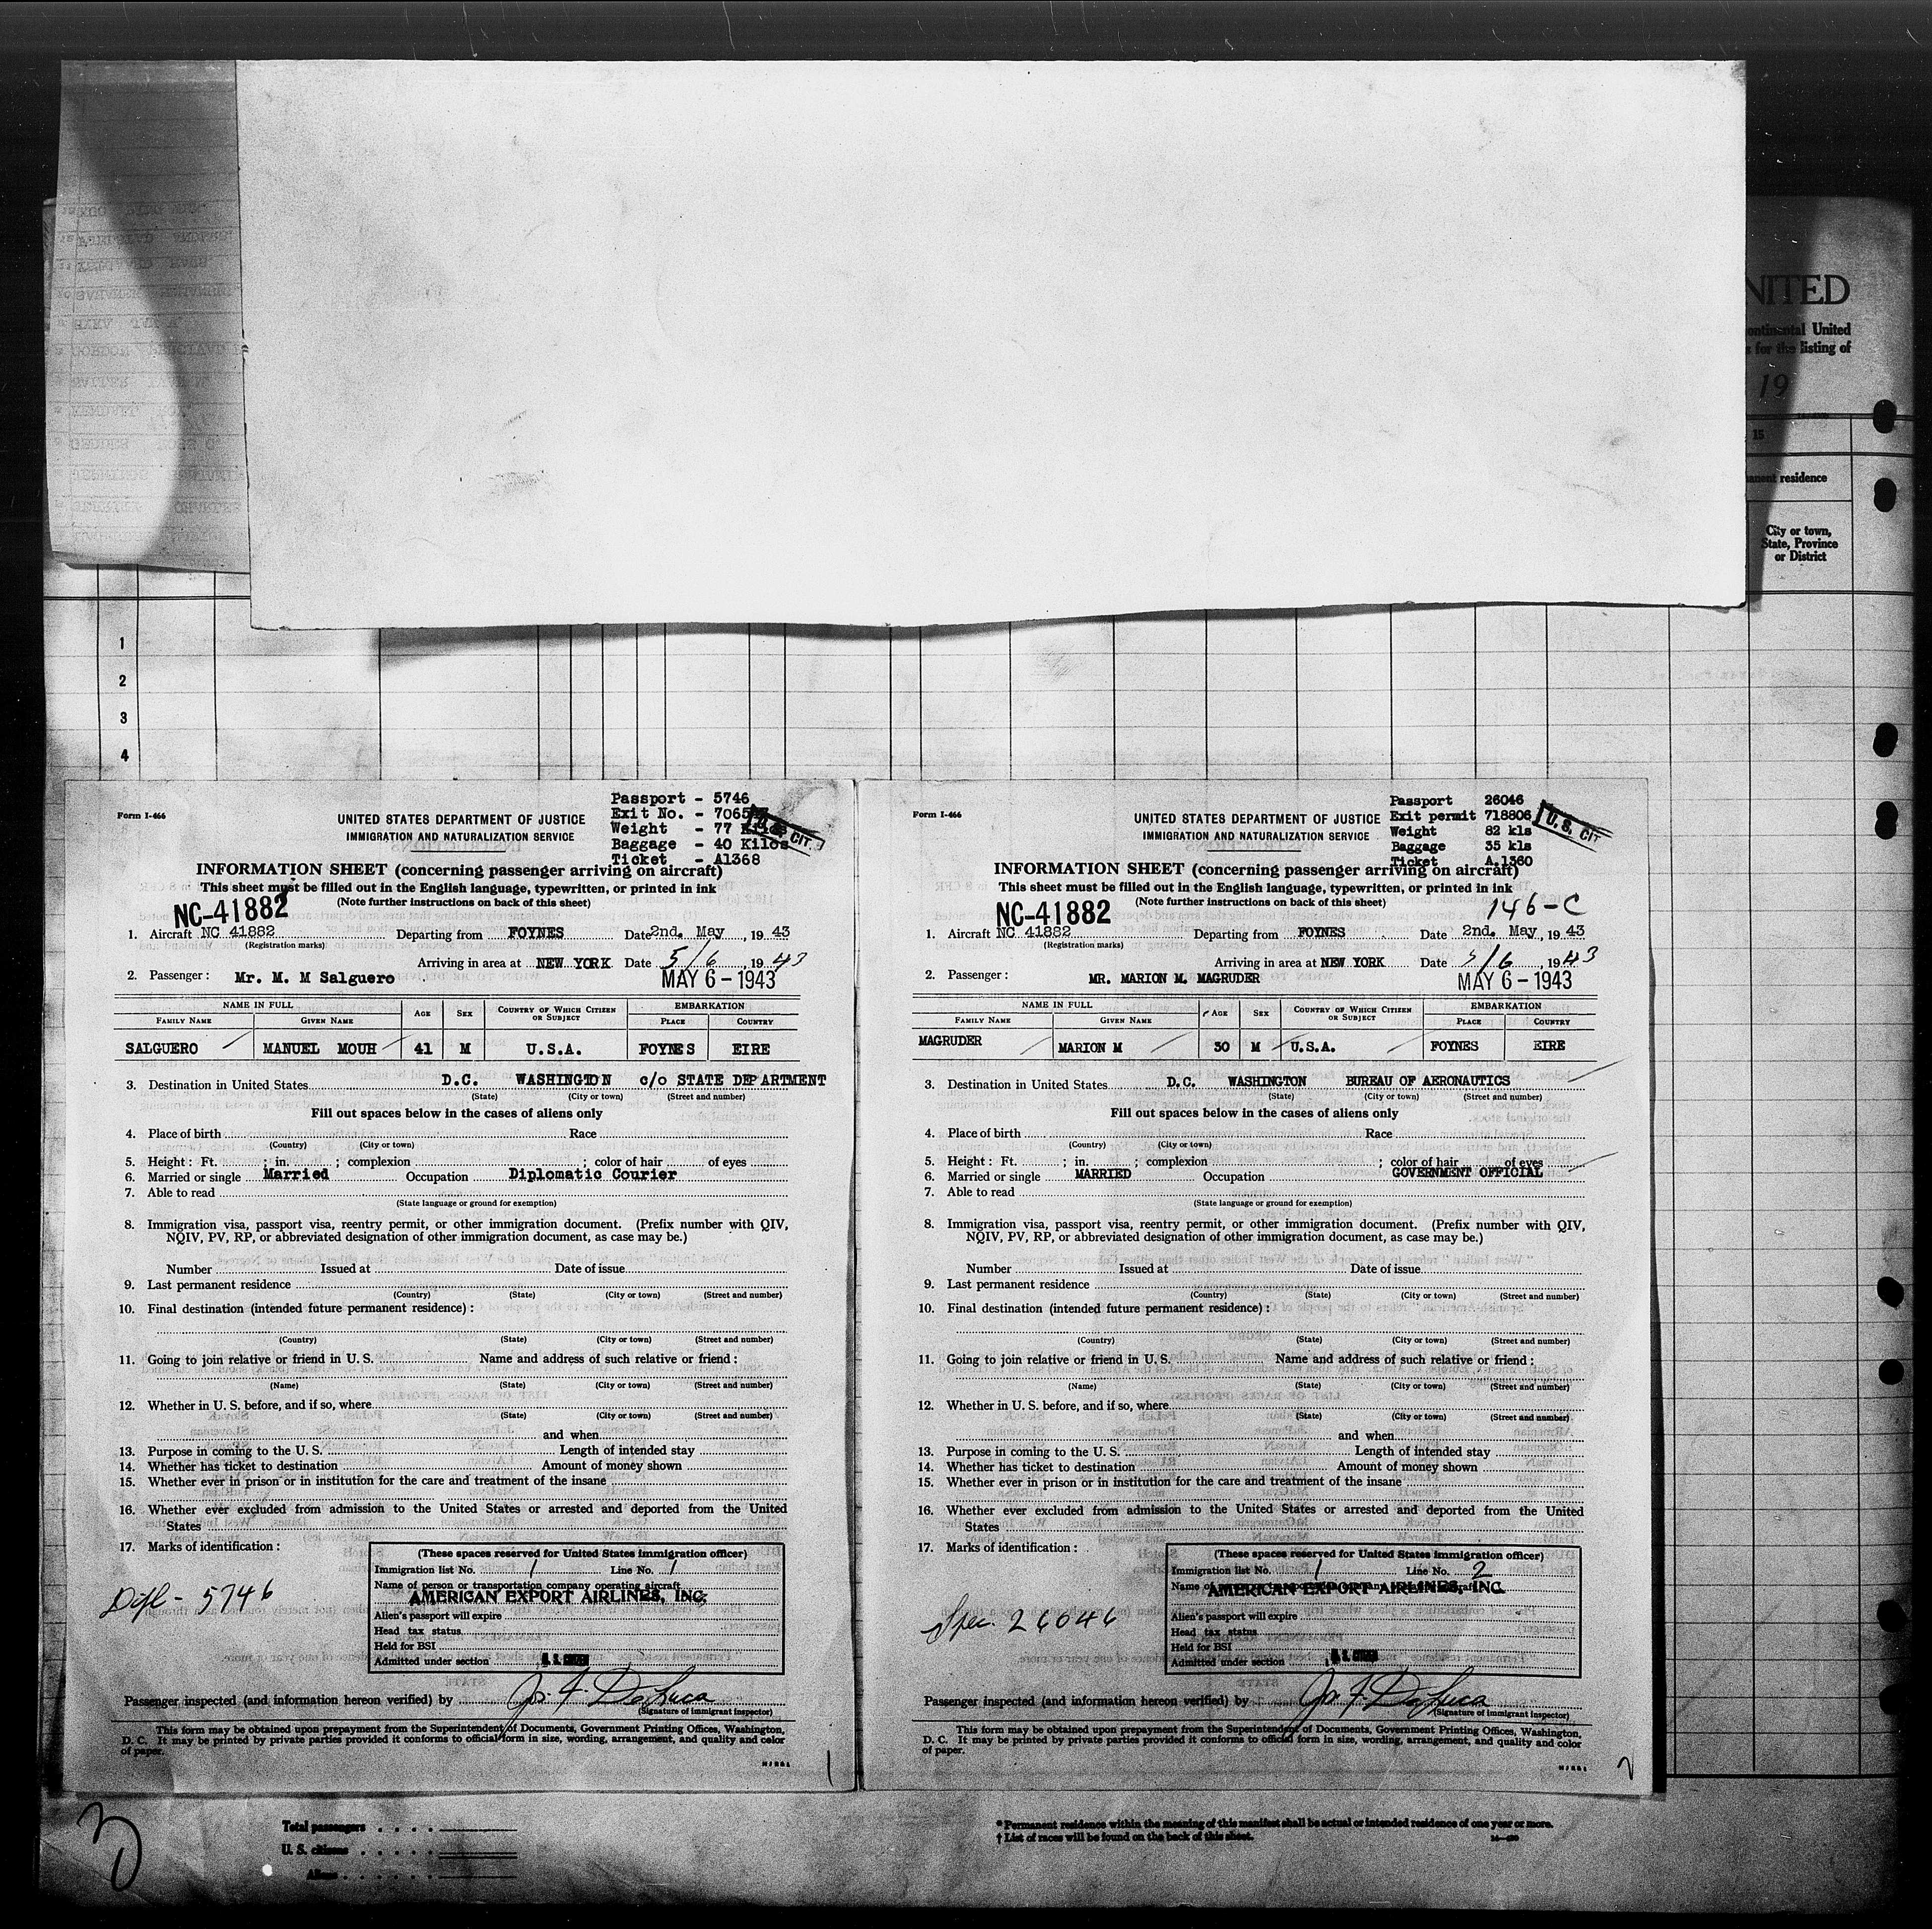 NITED
ontinental United
s for the listing of
19
15
anent residence
City or town,
State, Province
or District
1
2
3
4
Passport - 5746
Exit No. - 7065
Weight - 77 Kilos
Baggage - 40 Kilos
Ticket - A1368
U. S. CIT.
Form I-466
UNITED STATES DEPARTMENT OF JUSTICE
IMMIGRATION AND NATURALIZATION SERVICE
INFORMATION SHEET (concerning passenger arriving on aircraft)
This sheet must be filled out in the English language, typewritten, or printed in ink
(Note further instructions on back of this sheet)
NC-41882
1. Aircraft NC 41882 Departing from FOYNES Date 2nd. May, 1943
(Registration marks)
Arriving in area at NEW YORK Date 5/6, 1943
2. Passenger: Mr. M. M Salguero MAY 6 - 1943
NAME IN FULL AGE SEX COUNTRY OF WHICH CITIZEN OR SUBJECT EMBARKATION
FAMILY NAME GIVEN NAME PLACE COUNTRY
SALGUERO MANUEL MOUH 41 M U.S.A. FOYNES EIRE
3. Destination in United States D.C. WASHINGTON c/o STATE DEPARTMENT
(State) (City or town) (Street and number)
Fill out spaces below in the cases of aliens only
4. Place of birth Race
(Country) (City or town)
5. Height: Ft. ; in. ; complexion ; color of hair of eyes
6. Married or single Married Occupation Diplomatic Courier
7. Able to read
(State language or ground for exemption)
8. Immigration visa, passport visa, reentry permit, or other immigration document. (Prefix number with QIV,
NQIV, PV, RP, or abbreviated designation of other immigration document, as case may be.)
Number Issued at Date of issue
9. Last permanent residence
(Country) (State) (City or town) (Street and number)
10. Final destination (intended future permanent residence):
(Country) (State) (City or town) (Street and number)
11. Going to join relative or friend in U. S. Name and address of such relative or friend:
(Name) (State) (City or town) (Street and number)
12. Whether in U. S. before, and if so, where
(State) (City or town) (Street and number)
and when
13. Purpose in coming to the U. S. Length of intended stay
14. Whether has ticket to destination Amount of money shown
15. Whether ever in prison or in institution for the care and treatment of the insane
16. Whether ever excluded from admission to the United States or arrested and deported from the United
States
17. Marks of identification:
(These spaces reserved for United States immigration officer)
Immigration list No. 1 Line No. 1
Name of person or transportation company operating aircraft
AMERICAN EXPORT AIRLINES, INC.
Alien's passport will expire
Head tax status
Held for BSI
Admitted under section
Dipl - 5746
Passenger inspected (and information hereon verified) by Jos. F. DeLuca
(Signature of immigrant inspector)
This form may be obtained upon prepayment from the Superintendent of Documents, Government Printing Offices, Washington,
D. C. It may be printed by private parties provided it conforms to official form in size, wording, arrangement, and quality and color
of paper.
1
Passport 26046
Exit permit 718806
Weight 82 kls
Baggage 35 kls
Ticket A.1360
U. S. CIT
Form I-466
UNITED STATES DEPARTMENT OF JUSTICE
IMMIGRATION AND NATURALIZATION SERVICE
INFORMATION SHEET (concerning passenger arriving on aircraft)
This sheet must be filled out in the English language, typewritten, or printed in ink
(Note further instructions on back of this sheet)
NC-41882
146-C
1. Aircraft NC 41882 Departing from FOYNES Date 2nd. May, 1943
(Registration marks)
Arriving in area at NEW YORK Date 5/6, 1943
2. Passenger: MR. MARION M. MAGRUDER MAY 6 - 1943
NAME IN FULL AGE SEX COUNTRY OF WHICH CITIZEN OR SUBJECT EMBARKATION
FAMILY NAME GIVEN NAME PLACE COUNTRY
MAGRUDER MARION M 30 M U.S.A. FOYNES EIRE
3. Destination in United States D.C. WASHINGTON BUREAU OF AERONAUTICS
(State) (City or town) (Street and number)
Fill out spaces below in the cases of aliens only
4. Place of birth Race
(Country) (City or town)
5. Height: Ft. ; in. ; complexion ; color of hair of eyes
6. Married or single MARRIED Occupation GOVERNMENT OFFICIAL
7. Able to read
(State language or ground for exemption)
8. Immigration visa, passport visa, reentry permit, or other immigration document. (Prefix number with QIV,
NQIV, PV, RP, or abbreviated designation of other immigration document, as case may be.)
Number Issued at Date of issue
9. Last permanent residence
(Country) (State) (City or town) (Street and number)
10. Final destination (intended future permanent residence):
(Country) (State) (City or town) (Street and number)
11. Going to join relative or friend in U. S. Name and address of such relative or friend:
(Name) (State) (City or town) (Street and number)
12. Whether in U. S. before, and if so, where
(State) (City or town) (Street and number)
and when
13. Purpose in coming to the U. S. Length of intended stay
14. Whether has ticket to destination Amount of money shown
15. Whether ever in prison or in institution for the care and treatment of the insane
16. Whether ever excluded from admission to the United States or arrested and deported from the United
States
17. Marks of identification:
(These spaces reserved for United States immigration officer)
Immigration list No. 1 Line No. 2
AMERICAN EXPORT AIRLINES, INC.
Alien's passport will expire
Head tax status
Held for BSI
Admitted under section
Spec. 26046
Passenger inspected (and information hereon verified) by Jos. F. DeLuca
(Signature of immigrant inspector)
This form may be obtained upon prepayment from the Superintendent of Documents, Government Printing Offices, Washington,
D. C. It may be printed by private parties provided it conforms to official form in size, wording, arrangement, and quality and color
of paper.
2
Total passengers
U. S. citizens
Aliens
* Permanent residence within the meaning of this manifest shall be actual or intended residence of one year or more.
† List of races will be found on the back of this sheet.